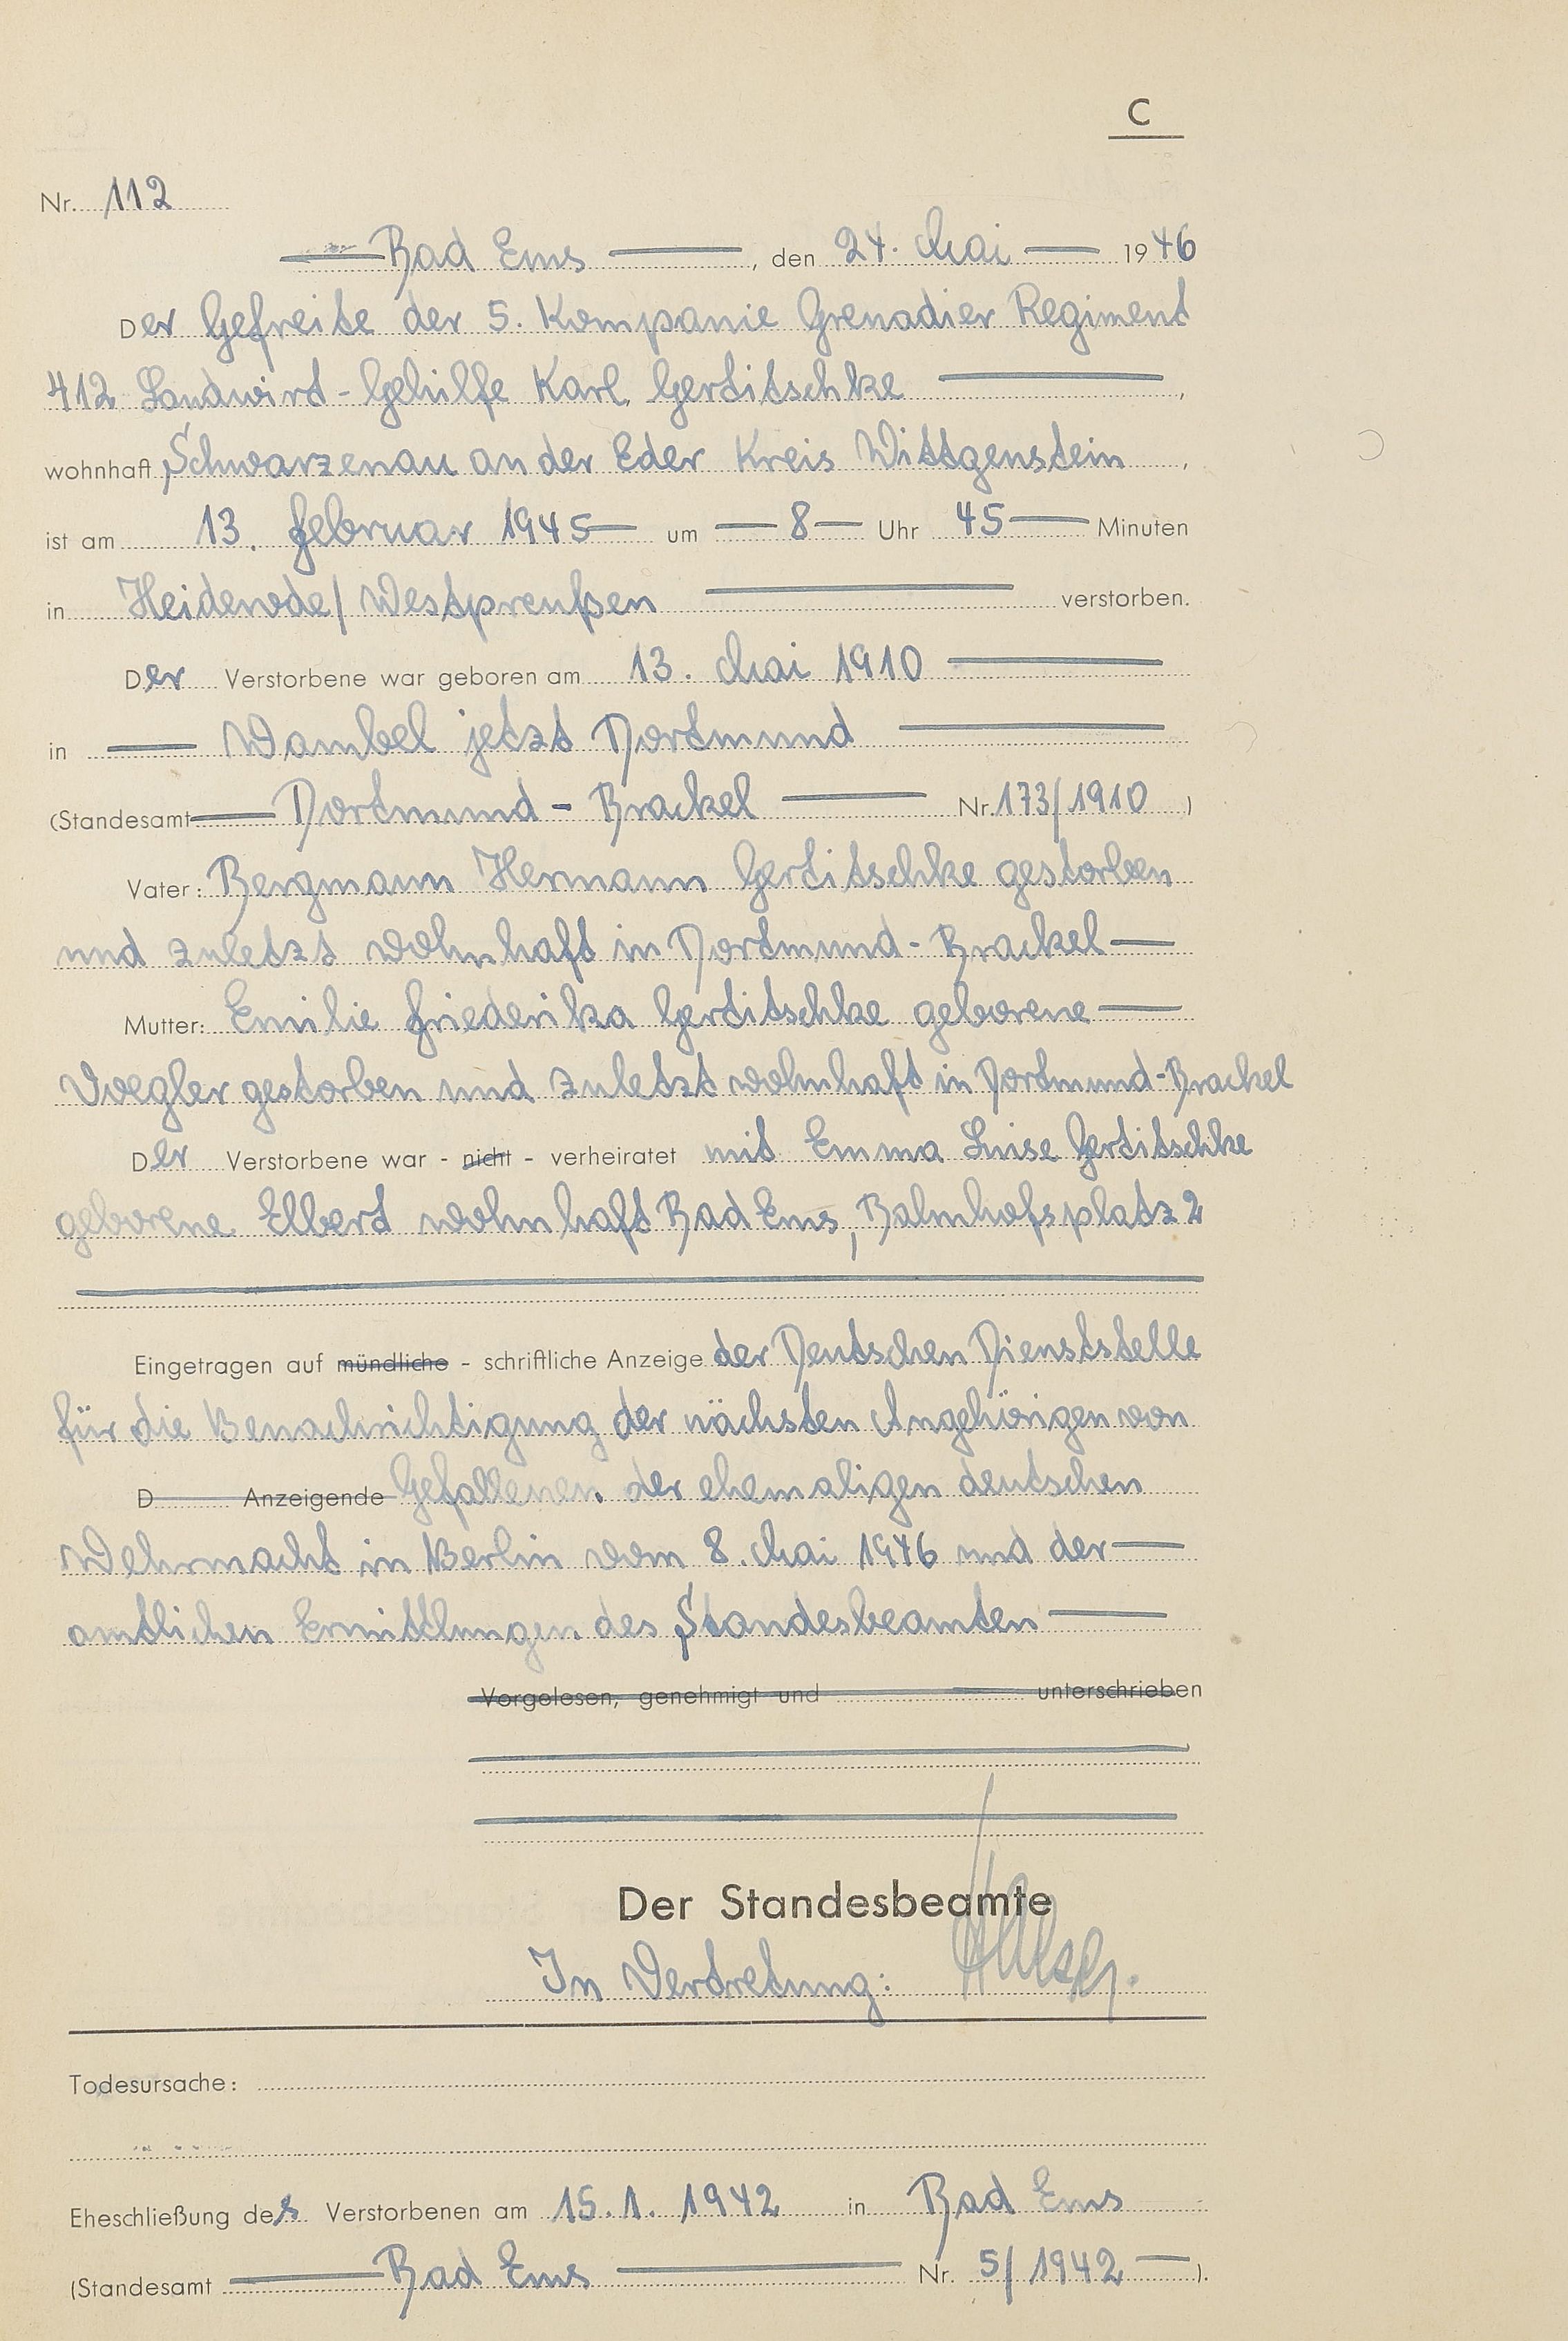 C
Nr. 112
Bad Ems, den 24. Mai 1946
Der Gefreite der 5. Kompanie Grenadier Regiment
412 Landwirt-Gehilfe Karl Gertitschke,
wohnhaft Schwarzenau an der Eder Kreis Wittgenstein,
ist am 13. Februar 1945 um 8 Uhr 45 Minuten
in Heiderode/Westpreußen verstorben.
Der Verstorbene war geboren am 13. Mai 1910
in Wambel jetzt Dortmund
(Standesamt Dortmund-Brackel Nr. 173/1910)
Vater: Bergmann Hermann Gertitschke gestorben
und zuletzt wohnhaft in Dortmund-Brackel
Mutter: Emilie Friederika Gertitschke geborene
Voegler gestorben und zuletzt wohnhaft in Dortmund-Brackel
Der Verstorbene war - nicht - verheiratet mit Emma Luise Gertitschke
geborene Elbert wohnhaft Bad Ems, Bahnhofsplatz 2
Eingetragen auf mündliche - schriftliche Anzeige der Deutschen Dienststelle
für die Benachrichtigung der nächsten Angehörigen von
D Anzeigende Gefallenen der ehemaligen deutschen
Wehrmacht in Berlin vom 8. Mai 1946 und der
amtlichen Ermittlungen des Standesbeamten
Vorgelesen, genehmigt und unterschrieben
Der Standesbeamte
In Vertretung:
Todesursache:
Eheschließung des Verstorbenen am 15.1.1942 in Bad Ems
(Standesamt Bad Ems Nr. 5/1942).